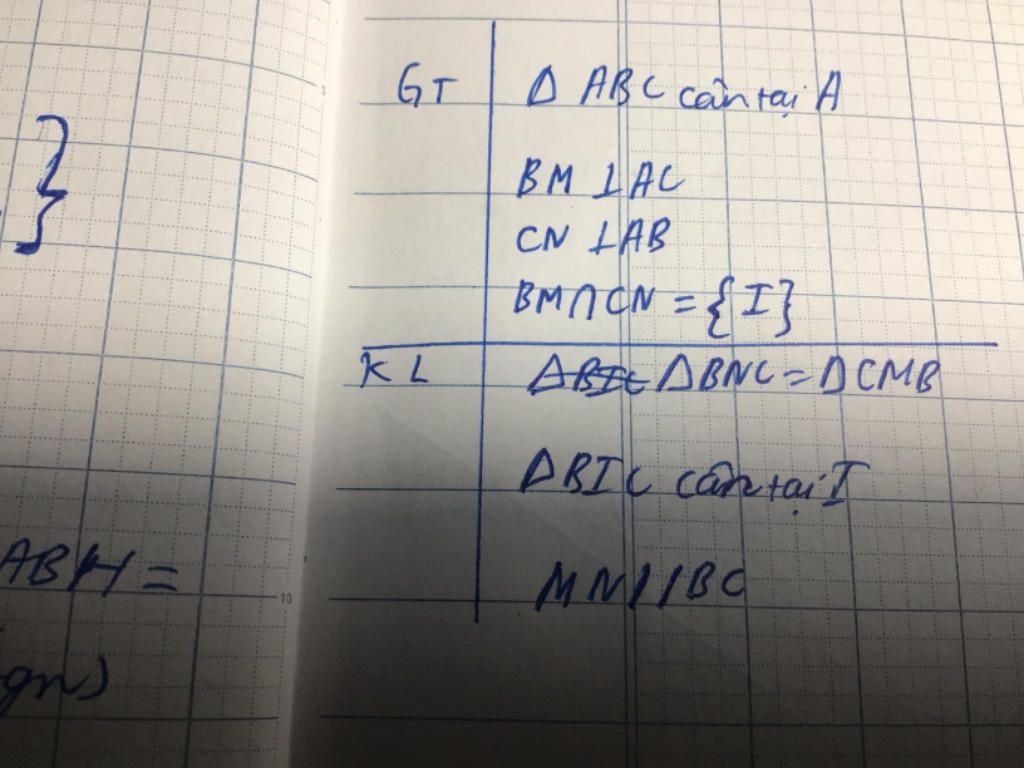 }
ABH =
gn)
GT ∆ ABC cân tại A
BM ⊥ AC
CN ⊥ AB
BM ∩ CN = {I}
KL ∆BIC ∆BNC = ∆CMB
∆BIC cân tại I
MN // BC
10